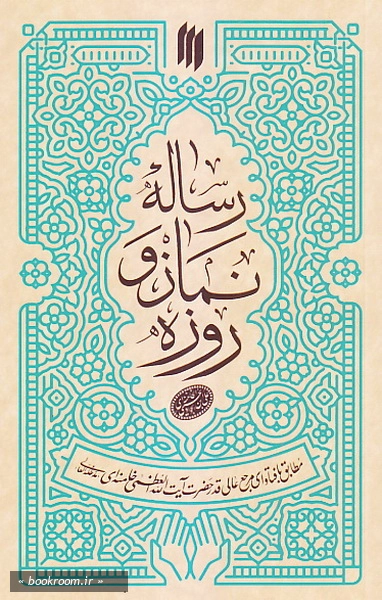 رساله
نماز و
روزه
مطابق با فتاوای مرجع عالی قدر حضرت آیت الله العظمی خامنه‌ای
« bookroom.ir »